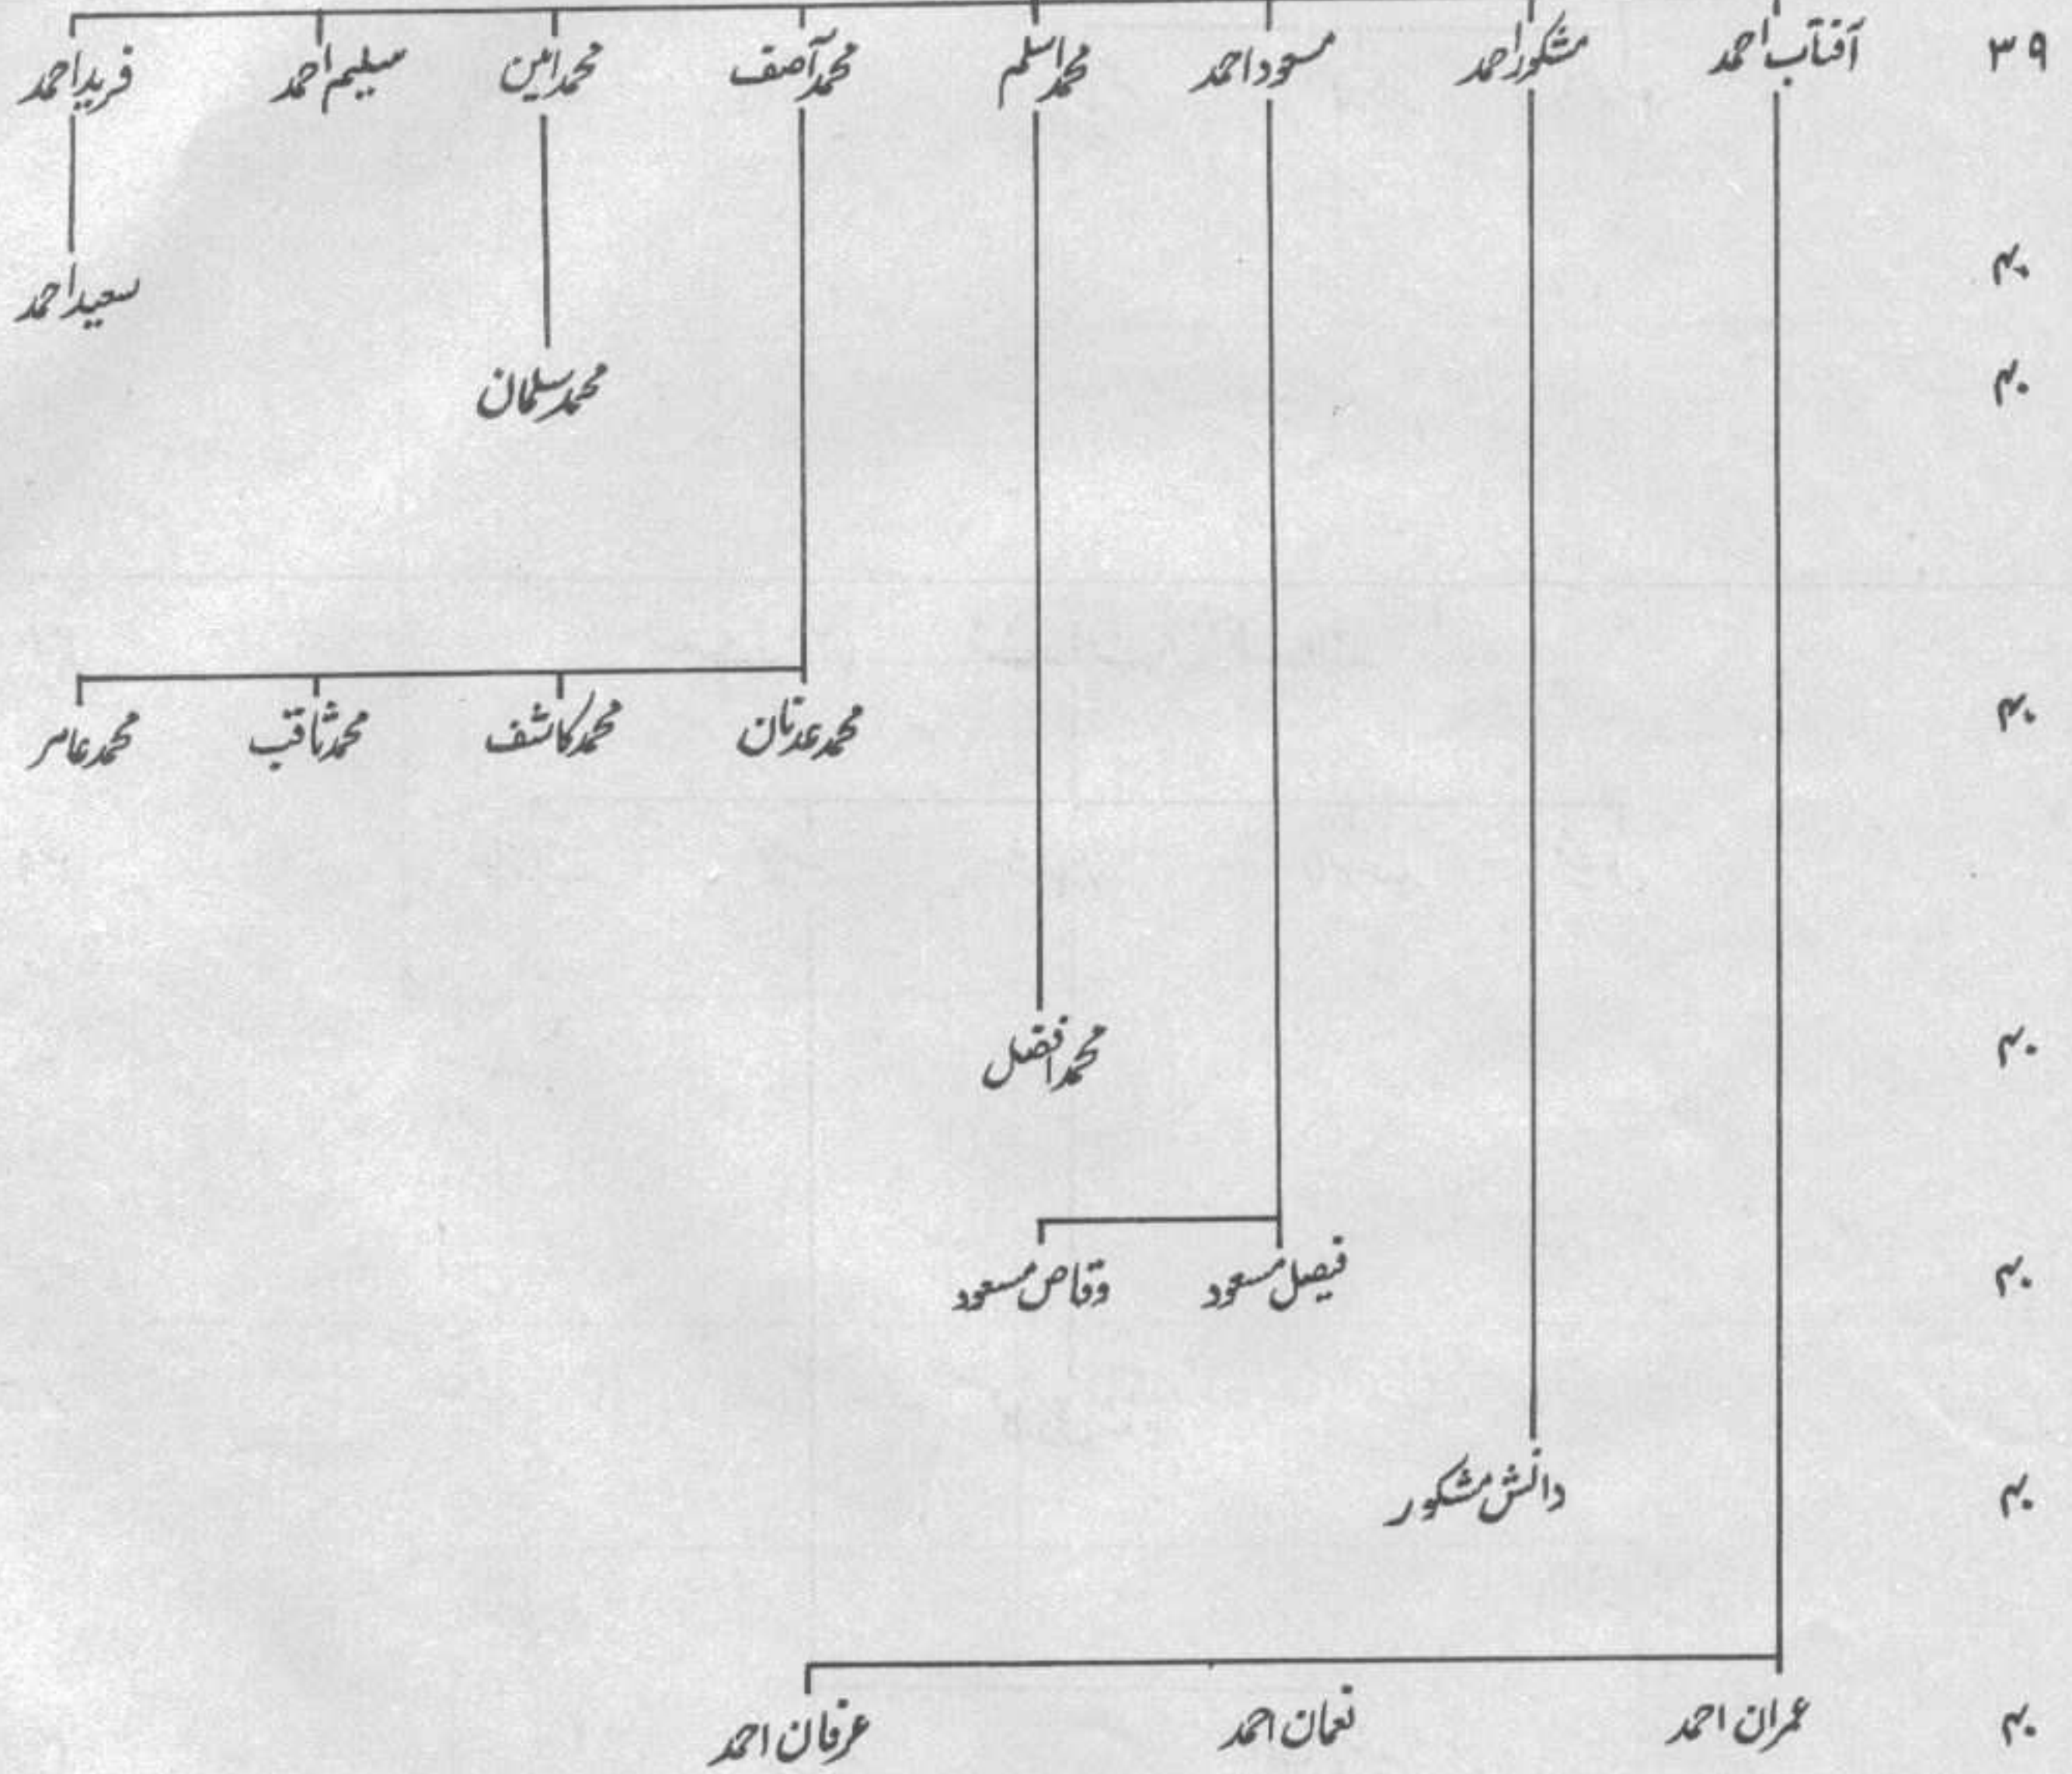 ۳۹ آفتاب احمد مشکور احمد مسعود احمد محمد اسلم محمد آصف محمد امین سلیم احمد فرید احمد
۴۰ سعید احمد
۴۰ محمد سلمان
۴۰ محمد عدنان محمد کاشف محمد ثاقب محمد عامر
۴۰ محمد افضل
۴۰ فیصل مسعود وقاص مسعود
۴۰ دانش مشکور
۴۰ عمران احمد نعمان احمد عرفان احمد